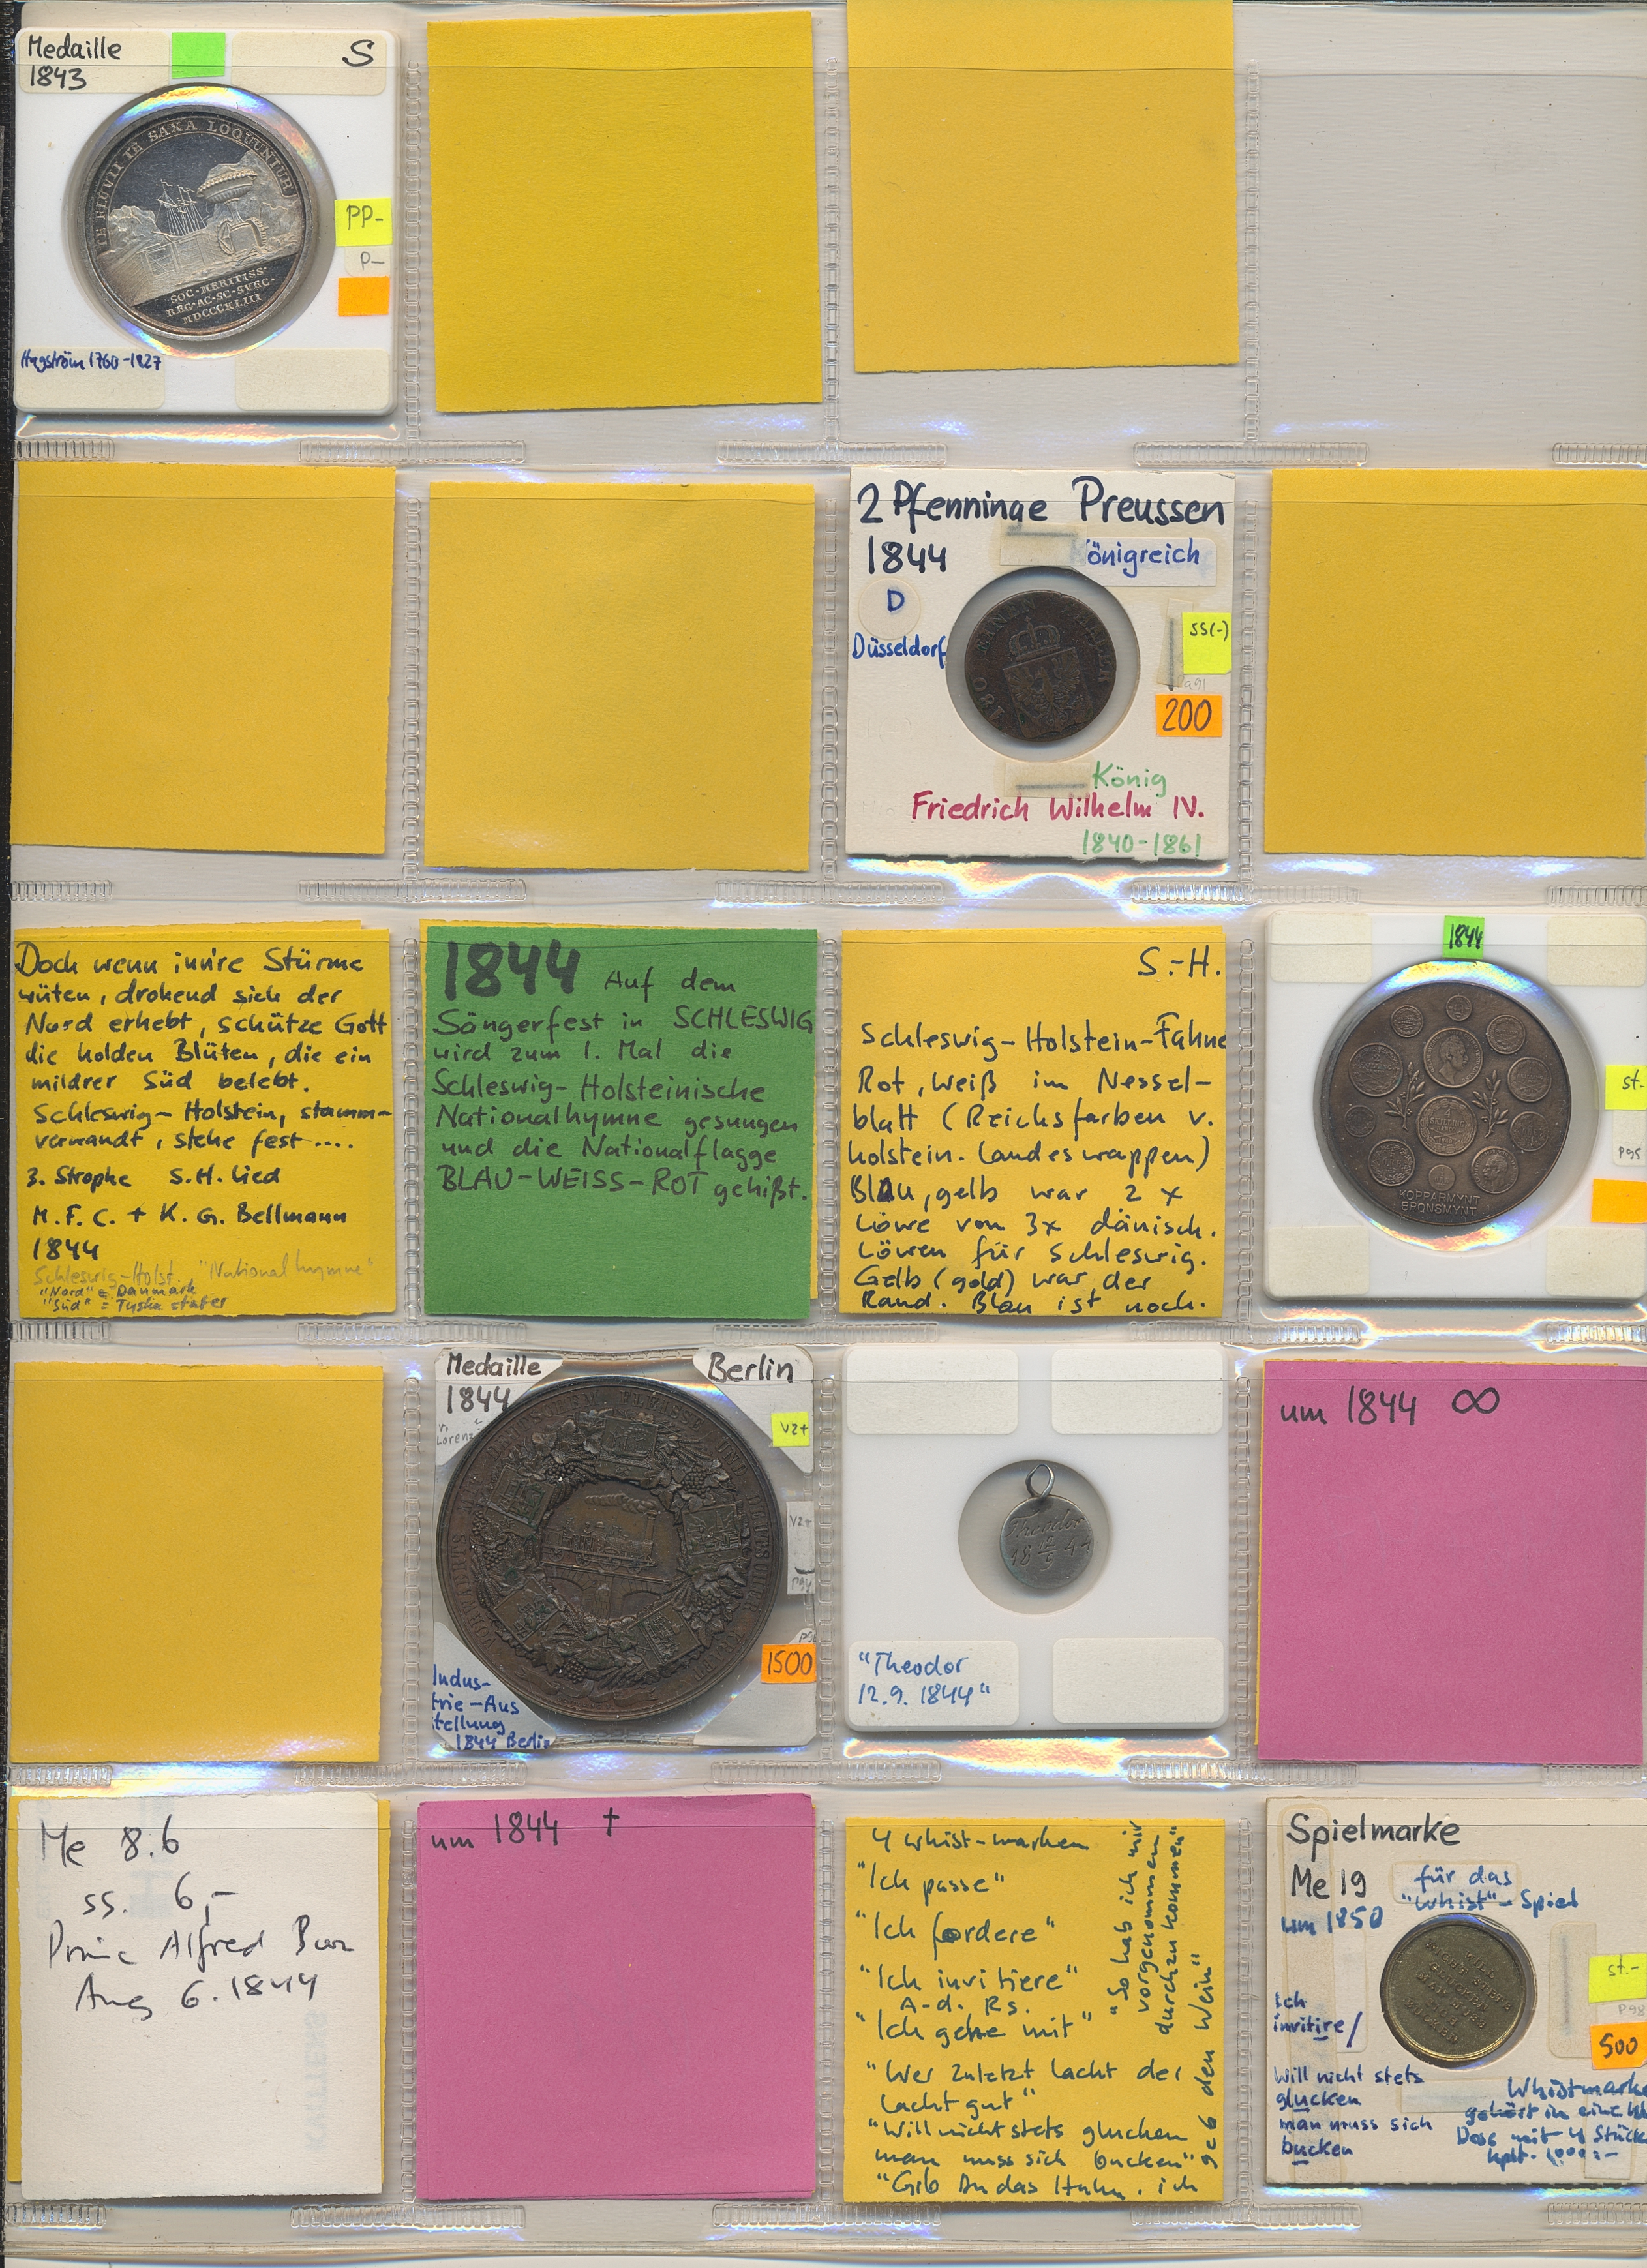 Medaille
1843
S
TE FLUVII TE SAXA LOQUUNTUR
SOC·MERITISS·
REG·AC·SC·SVEC·
MDCCCXLIII
PP-
P-
Hagström 1760-1827
2 Pfenninge Preussen
1844
Königreich
D
Düsseldorf
180 EINEN THALER
SS(-)
200
König
Friedrich Wilhelm IV.
1840-1861
Doch wenn inn're Stürme
wüten, drohend sich der
Nord erhebt, schütze Gott
die holden Blüten, die ein
mildrer Süd belebt.
Schleswig-Holstein, stamm-
verwandt, stehe fest ....
3. Strophe S.H. Lied
M.F.C. + K.G. Bellmann
1844
Schleswig-Holst. "Nationalhymne"
"Nord" = Danmark
"Süd" = Tyska stater
1844 Auf dem
Sängerfest in SCHLESWIG
wird zum 1. Mal die
Schleswig-Holsteinische
Nationalhymne gesungen
und die Nationalflagge
BLAU-WEISS-ROT gehißt.
S.-H.
Schleswig-Holstein-Fahne
Rot, weiß im Nessel-
blatt (Reichsfarben v.
holstein. Landeswappen)
Blau, gelb war 2 x
Löwe von 3x dänisch.
Löwen für Schleswig.
Gelb (gold) war der
Rand. Blau ist noch.
1844
st-
P95
KOPPARMYNT
BRONSMYNT
Medaille
1844
Berlin
Lorenz
V2+
V2+
1500
Indus-
trie-Aus
stellung
1844 Berlin
Theodor
18 12/9 44
"Theodor
12.9. 1844"
um 1844 ∞
Me 8.6
ss. 6,-
Princ Alfred
Aug 6. 1844
um 1844 †
4 Whist-marken
"Ich passe"
"Ich fordere"
"Ich invitiere"
A-d. Rs.
"Ich gehe mit"
"Wer zuletzt lacht der
lacht gut"
"Will nicht stets glucken
man muss sich bucken"
"Gib Du das Huhn. ich
geb den Wein"
"So hab ich mir
vorgenommen
durchzukommen"
Spielmarke
Me 19
für das
"Whist"-Spiel
um 1850
WILL
NICHT STETS
GLUCKEN
MAN MUSS
SICH
BUCKEN
st.-
P98
500
Ich
invitire/
Will nicht stets
glucken
man muss sich
bucken
Whistmarke
gehört in eine
Dose mit 4 Stück
kplt. 1.000:-